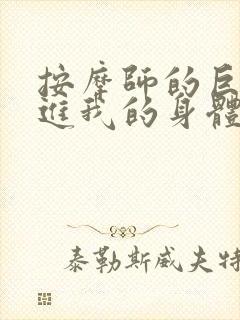 按摩師的巨
進我的身體
泰勒斯威夫特